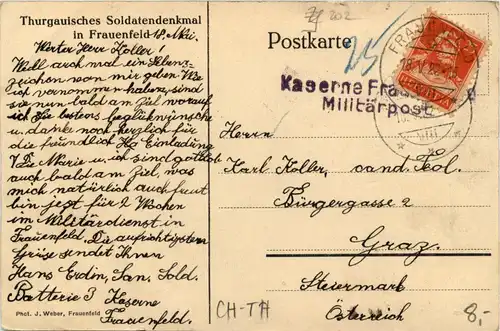 Thurgauisches Soldatendenkmal
in Frauenfeld 18. Mai.
Werter Herr Koller!
Weil auch mal ein Lebens-
zeichen von mir geben. Wie
ich vernommen haben, sind
sie nun bald am Ziel worauf
ich die besten Beglückwünsche
u. danke noch herzlich für
die freundlich Einladung
Die Marie u. ich sind gottlob
auch bald am Ziel, was
mich natürlich auch freut
bin jetzt für 2 Wochen
im Militärdienst in
Frauenfeld. Die aufrichtigsten
Grüsse sendet Ihnen
Hans Erdin, San. Sold.
Batterie 3 Kaserne
Frauenfeld.
Phot. J. Weber, Frauenfeld
202
Postkarte
25
Kaserne
Militärpost
FRAU
VIII
Herrn
Karl Koller, cand. Ped.
Bürgergasse 2
Graz.
Steiermark
Österreich
CH-TH
8.-